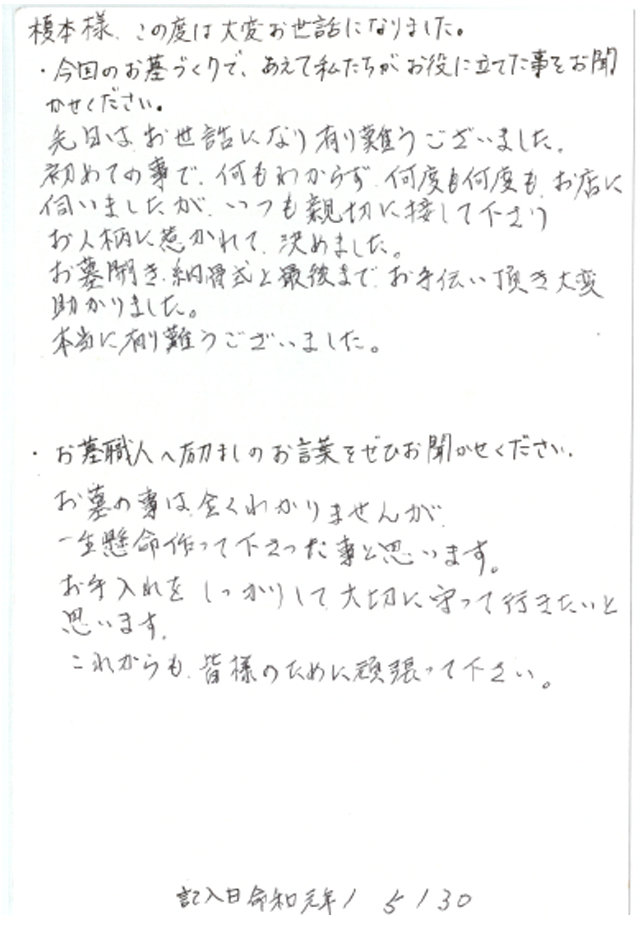 榎本様、この度は大変お世話になりました。
・今回のお墓づくりで、あえて私たちがお役に立てた事をお聞
かせください。
先日は、お世話になり有り難うございました。
初めての事で、何もわからず、何度も何度も、お店に
伺いましたが、いつも親切に接して下さり
お人柄に惹かれて、決めました。
お墓開き、納骨式と最後まで、お手伝い頂き大変
助かりました。
本当に有り難うございました。
・お墓職人へ励ましのお言葉をぜひお聞かせください。
お墓の事は、全くわかりませんが、
一生懸命作って下さった事と思います。
お手入れを しっかりして、大切に守って行きたいと
思います。
これからも、皆様のために頑張って下さい。
記入日 令和元年/ 5/30